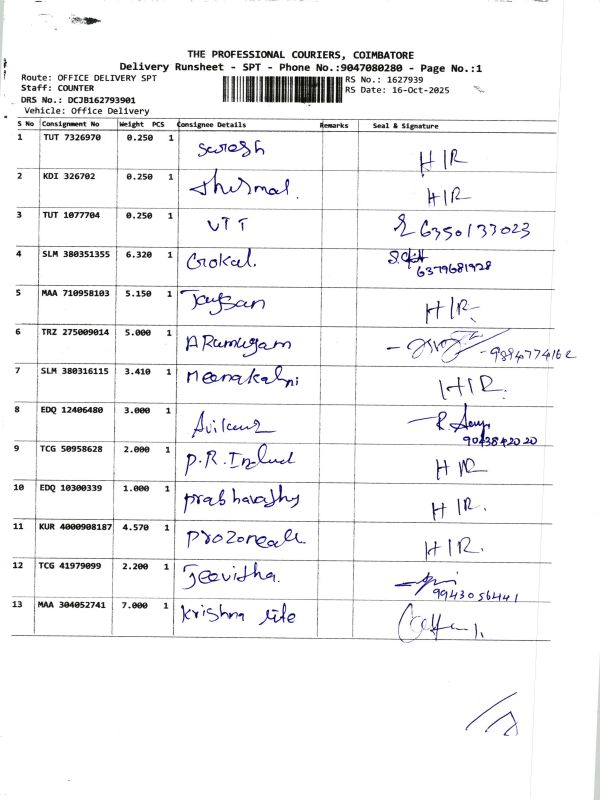 THE PROFESSIONAL COURIERS, COIMBATORE
Delivery Runsheet - SPT - Phone No.:9047080280 - Page No.:1
Route: OFFICE DELIVERY SPT
RS No.: 1627939
Staff: COUNTER
RS Date: 16-Oct-2025
DRS No.: DCJB162793901
Vehicle: Office Delivery
S No Consignment No Weight PCS Consignee Details Remarks Seal & Signature
1 TUT 7326970 0.250 1 Suresh H/R
2 KDI 326702 0.250 1 Thermal. H/R
3 TUT 1077704 0.250 1 VTT 6350133023
4 SLM 380351355 6.320 1 Gokal. 6379681928
5 MAA 710958103 5.150 1 H/R-
6 TRZ 275009014 5.000 1 ARumugam - 9894774162
7 SLM 380316115 3.410 1 H/R.
8 EDQ 12406480 3.000 1 9043842020
9 TCG 50958628 2.000 1 P.R. H/R
10 EDQ 10300339 1.000 1 prabhavathy H/R.
11 KUR 4000908187 4.570 1 H/R.
12 TCG 41979099 2.200 1 Jeevitha. 9943056441
13 MAA 304052741 7.000 1 Krishna